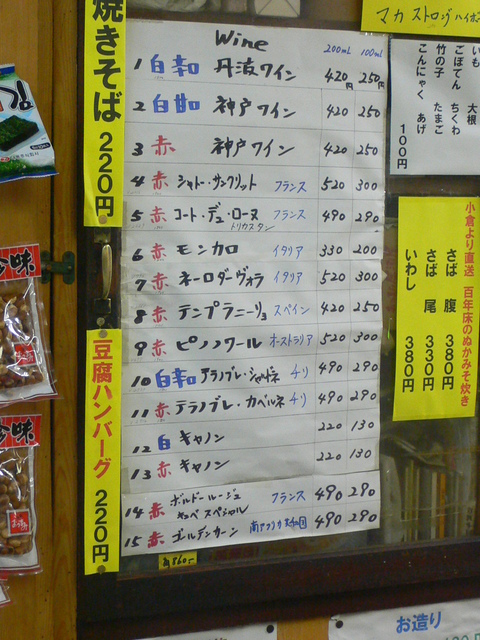 焼きそば 220円
豆腐ハンバーグ 220円
Wine
200mL 100mL
1 白辛 丹波ワイン 420円 250円
2 白甘 神戸ワイン 420 250
3 赤 神戸ワイン 420 250
4 赤 シャトー・サンクリット フランス 520 300
5 赤 コート・デュ・ローヌ フランス 490 290
トリカスタン
6 赤 モンカロ イタリア 330 200
7 赤 ネーロダーヴォラ イタリア 520 300
8 赤 テンプラニーリョ スペイン 420 250
9 赤 ピノノワール オーストラリア 520 300
10 白辛 テラノブレ・シャルドネ チリ 490 290
11 赤 テラノブレ・カベルネ チリ 490 290
12 白 キャノン 220 130
13 赤 キャノン 220 130
14 赤 ボルドールージュ フランス 490 290
キュベスペシャル
15 赤 ゴールデンカーン 南アフリカ共和国 490 290
マカ ストロング ハイボ
いも 大根
ごぼてん ちくわ
竹の子 たまご
こんにゃく あげ
100円
小倉より直送 百年床のぬかみそ炊き
さば 腹 380円
さば 尾 330円
いわし 380円
お造り
珍味
珍味